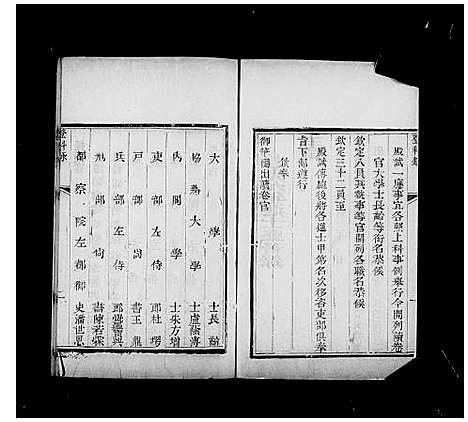 登科錄
殿試一應事宜各照上科事例舉行今開列讀卷
官大學士長齡等銜名恭候
欽定八員其執事等官開列各職名恭候
欽定三十二員至
殿試傳臚後將各進士甲第名次移咨吏部俱奉
旨下部遵行
欽奉
御筆圈出讀卷官
大學士長齡
協辦大學士盧蔭溥
內閣學士朱方增
吏部左侍郎杜堮
戶部尚書王鼎
兵部左侍郎覺羅寶興
刑部尚書陳若霖
都察院左都御史潘世恩
登科錄